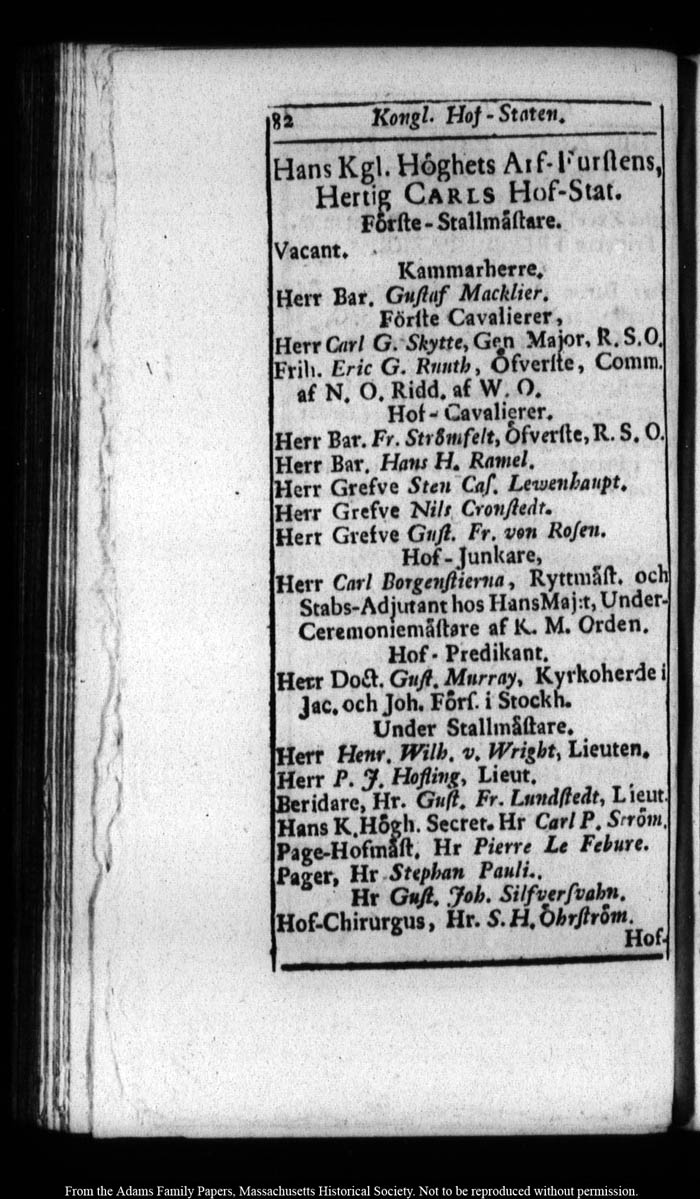 82 Kongl. Hof-Staten.
Hans Kgl. Höghets Arf-Furſtens,
Hertig CARLS Hof-Stat.
Förſte-Stallmåſtare.
Vacant.
Kammarherre.
Herr Bar. Guſtaf Macklier.
Förſte Cavalierer,
Herr Carl G. Skytte, Gen Major, R. S. O.
Frih. Eric G. Ruuth, Öfverſte, Comm.
af N. O. Ridd. af W. O.
Hof-Cavalierer.
Herr Bar. Fr. Strömfelt, Öfverſte, R. S. O.
Herr Bar. Hans H. Ramel.
Herr Grefve Sten Caſ. Lewenhaupt.
Herr Grefve Nils Cronſtedt.
Herr Grefve Guſt. Fr. von Roſen.
Hof-Junkare,
Herr Carl Borgenſtierna, Ryttmåſt. och
Stabs-Adjutant hos Hans Maj:t, Under-
Ceremoniemåſtare af K. M. Orden.
Hof-Predikant.
Herr Doct. Guſt. Murray, Kyrkoherde i
Jac. och Joh. Förſ. i Stockh.
Under Stallmåſtare.
Herr Henr. Wilh. v. Wright, Lieuten.
Herr P. J. Hofling, Lieut.
Beridare, Hr. Guſt. Fr. Lundſtedt, Lieut.
Hans K. Högh. Secret. Hr Carl P. Ström.
Page-Hofmåſt. Hr Pierre Le Febure.
Pager, Hr Stephan Pauli..
Hr Guſt. Joh. Silfverſvahn.
Hof-Chirurgus, Hr. S. H. Öhrſtröm.
Hof-
From the Adams Family Papers, Massachusetts Historical Society. Not to be reproduced without permission.